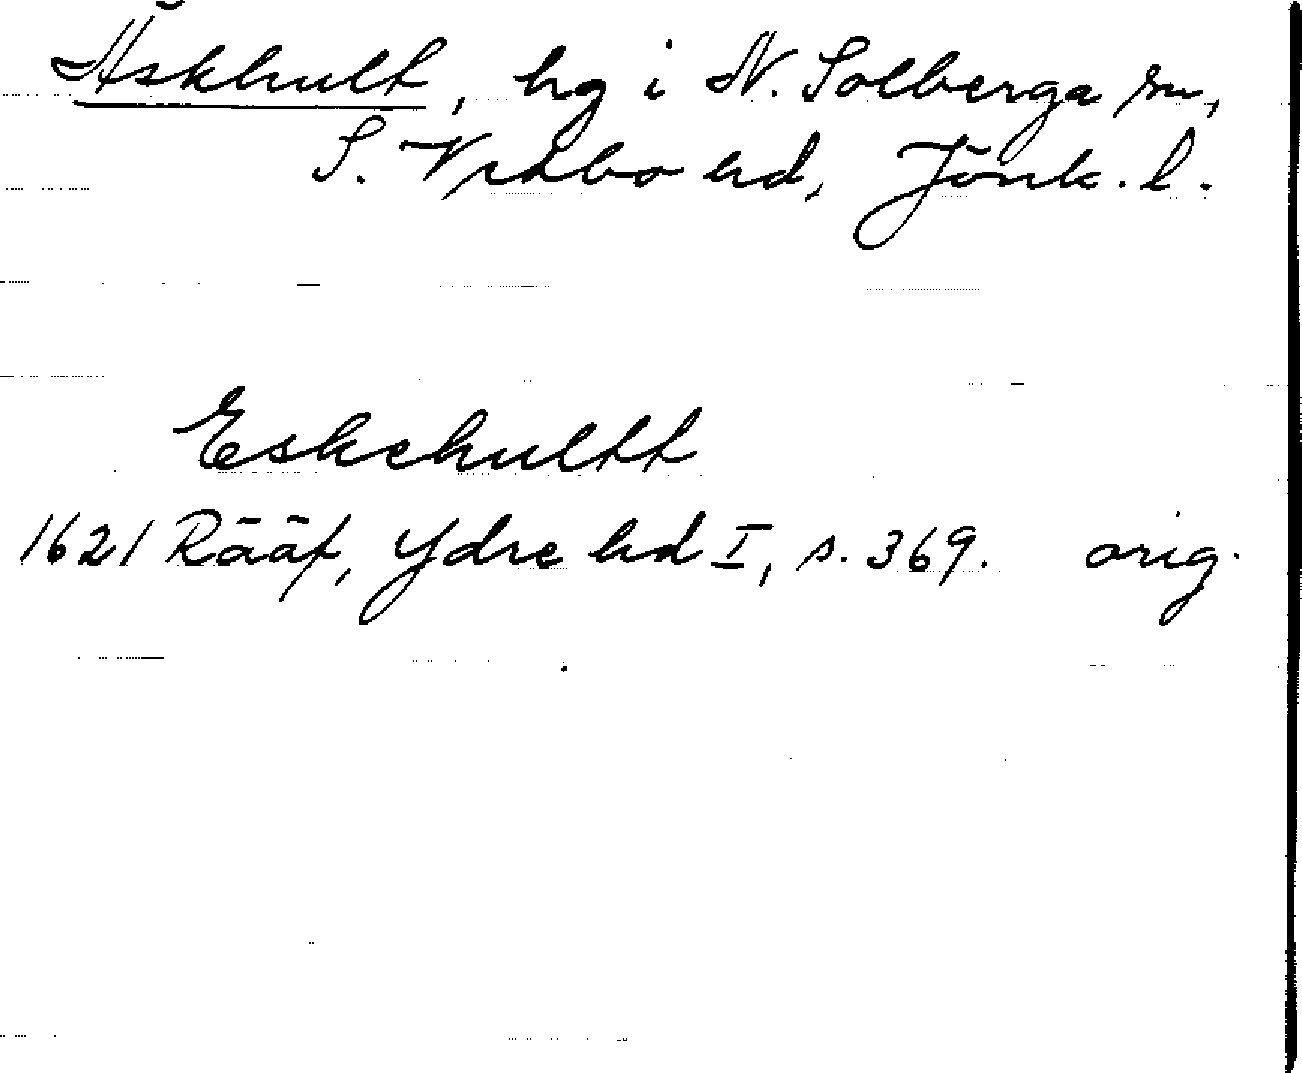 Äskhult, hg i N. Solberga sn,
S. Vedbo hd, Jönk. l.
Eskehultt
1621 Rääf, Ydre hd I, s. 369. orig.